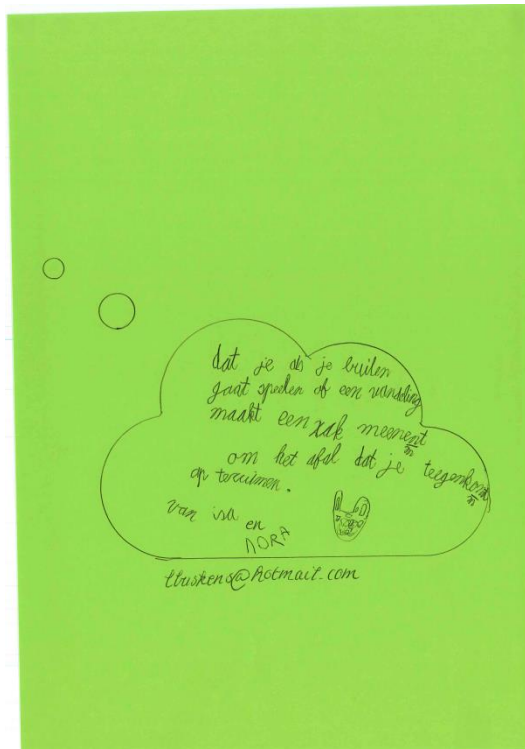 dat je als je buiten
gaat spelen of een wandeling
maakt een zak meeneemt
om het afal dat je teegenkomt
op teruimen.
van isa
en
NORA
@hotmail.com